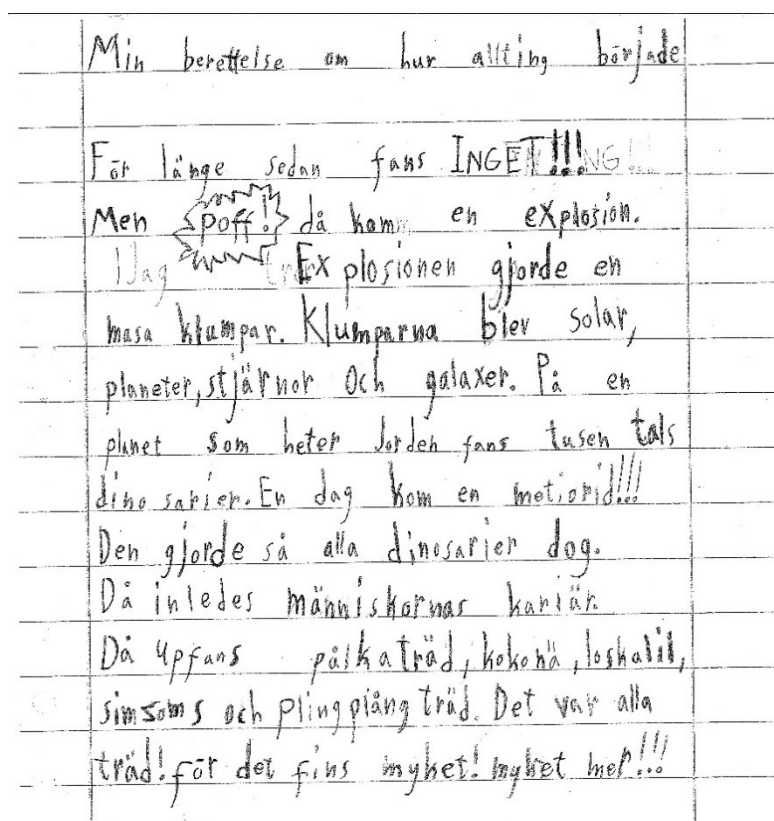 Min berettelse om hur allting började
För länge sedan fans INGET!!!
Men poff! då kom en explosion.
Explosionen gjorde en
masa klumpar. Klumparna blev solar,
planeter, stjärnor och galaxer. På en
planet som heter Jorden fans tusen tals
dino sarier. En dag kom en metiorid!!!
Den gjorde så alla dinosarier dog.
Då inledes människornas kariär.
Då upfans pålkaträd, kokonä, loskalil,
simsoms och plingplång träd. Det var alla
träd! för det fins myket! myket mer!!!